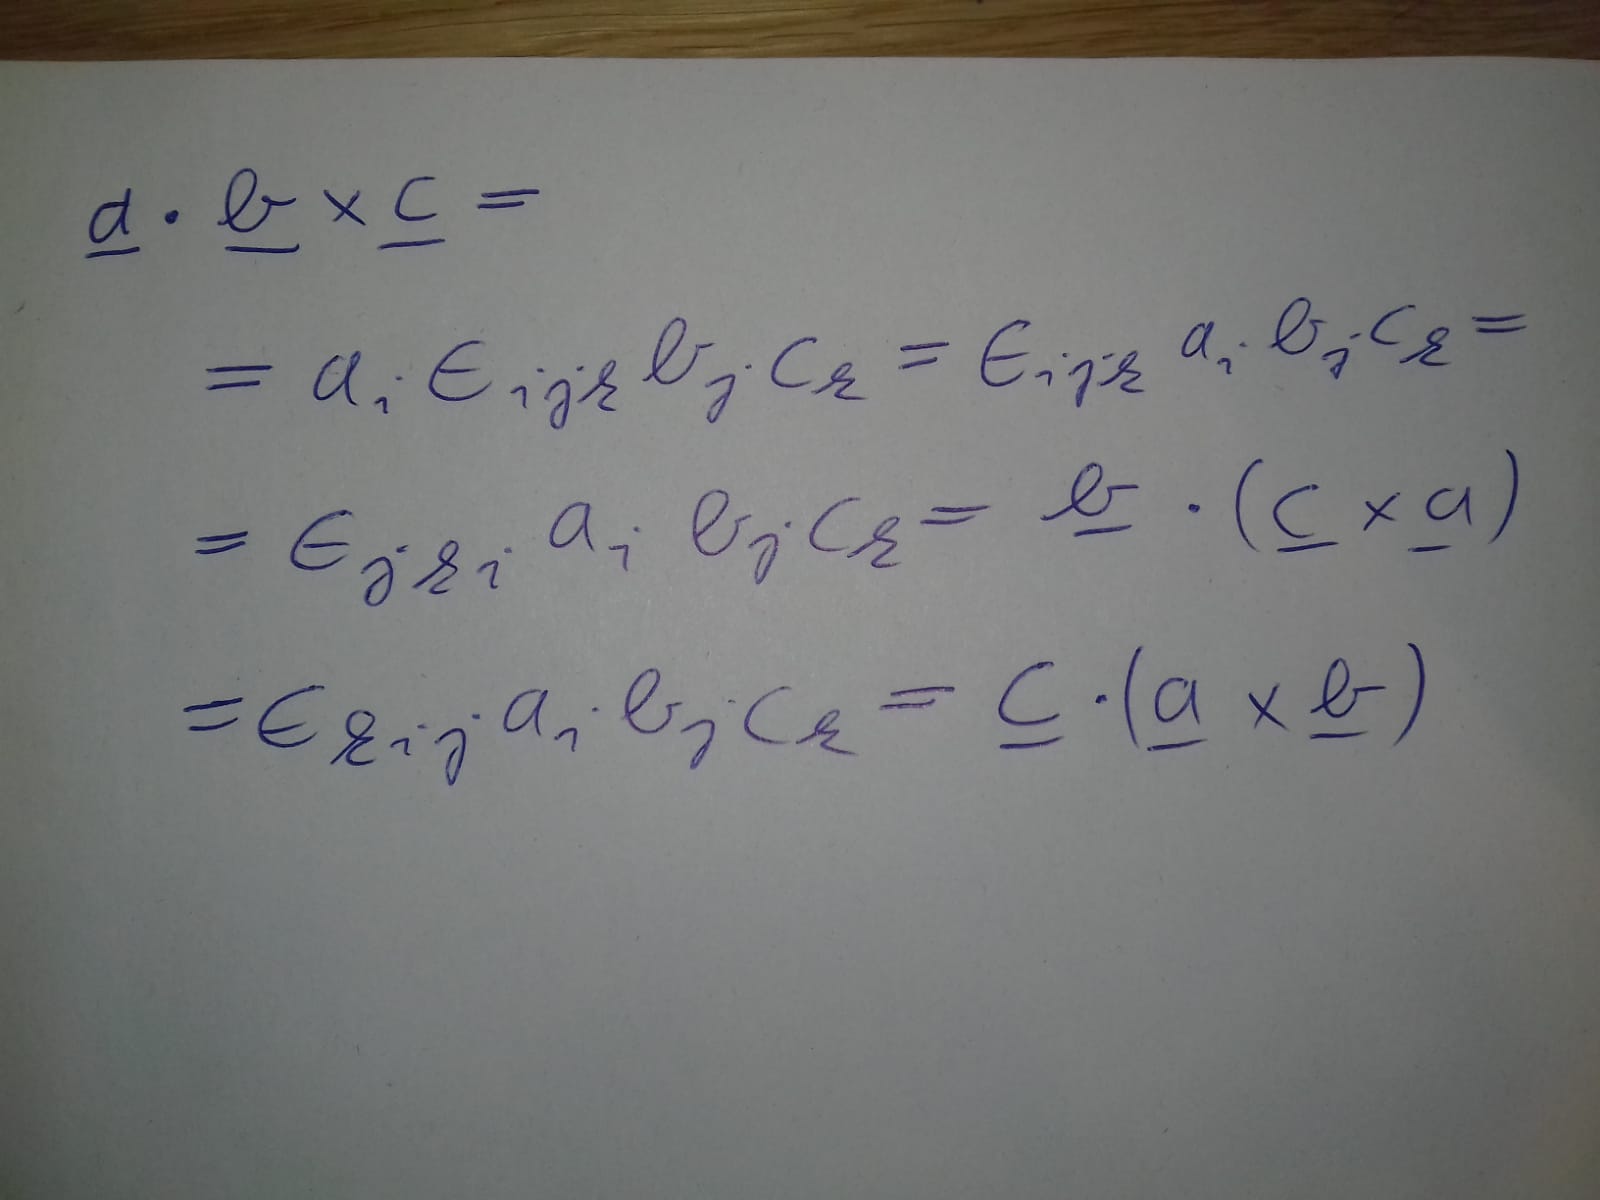 a · b × c =
= aᵢ ϵᵢⱼₖ bⱼ cₖ = ϵᵢⱼₖ aᵢ bⱼ cₖ =
= ϵⱼₖᵢ aᵢ bⱼ cₖ = b · (c × a)
= ϵₖᵢⱼ aᵢ bⱼ cₖ = c · (a × b)